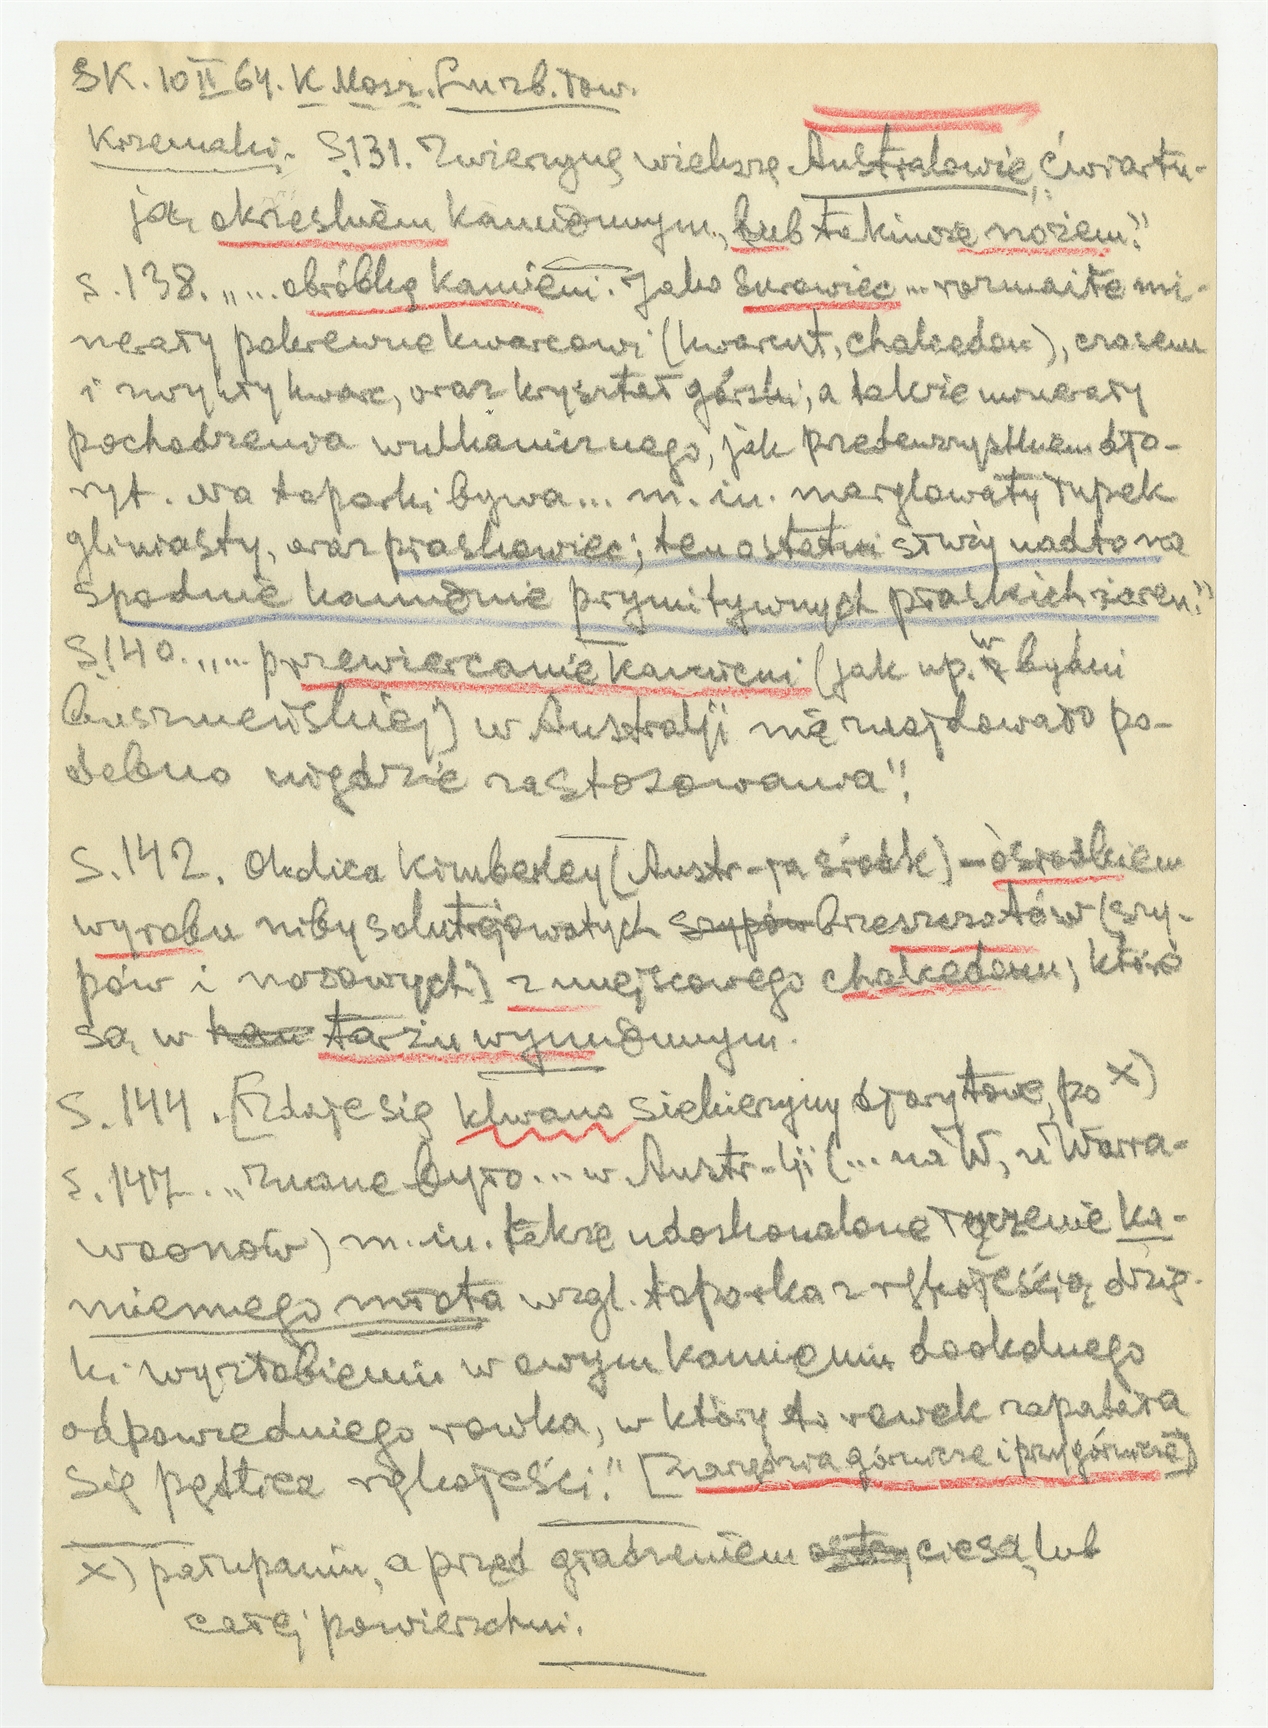 SK. 10 II 64. K. Mosz. tow.
Krzemaki. S. 131. Zwierzynę większą Australowie „ćwiartu-
ją krzesłnem kamiennym, lub także nożem."
S. 138. „... obróbkę kamieni. Jako surowiec ... rozmaite mi-
nerały pokrewne kwarcowi (kwarcyt, chalcedon), czasem
i zwykły kwarc, oraz kryształ górski, a także minerały
pochodzenia wulkanicznego, jak przedewszystkiem djo-
ryt. Na toporki bywa ... m. in. marglowaty łupek
gliniasty, oraz piaskowiec; ten ostatni służy nadto na
spodnie kamienie prymitywnych płaskich żaren."
S. 140. „... przewiercanie kamieni (jak np. w bytni
buszmeńskiej) w Australji nie znajdowało po-
dobno nigdzie zastosowania".
S. 142. Okolica Kimberley (Austr-ja środk) – ośrodkiem
wyrobu niby solutrejowatych szypów brzeszczotów (szy-
pów i nożowych) z miejscowego chalcedonu; które
są w han tarżu wymiennym.
S. 144. [Zdaje się klwano siekierzyny djorytowe, po x)
S. 147. „Znane było ... w Austr-lji (... na W, u Warra-
woonów) m. in. także udoskonalone łączenie ka-
miennego młota wzgl. toporka z rękojeścią dzię-
ki wyżłobieniu w owym kamieniu dookolnego
odpowiedniego rowka, w który to rowek zapadała
się pętlica rękojeści." [narzędzia górnicze i przygórnicze]
x) połupaniu, a przed gładzeniem ostrzy ciesą lub
całej powierzchni.